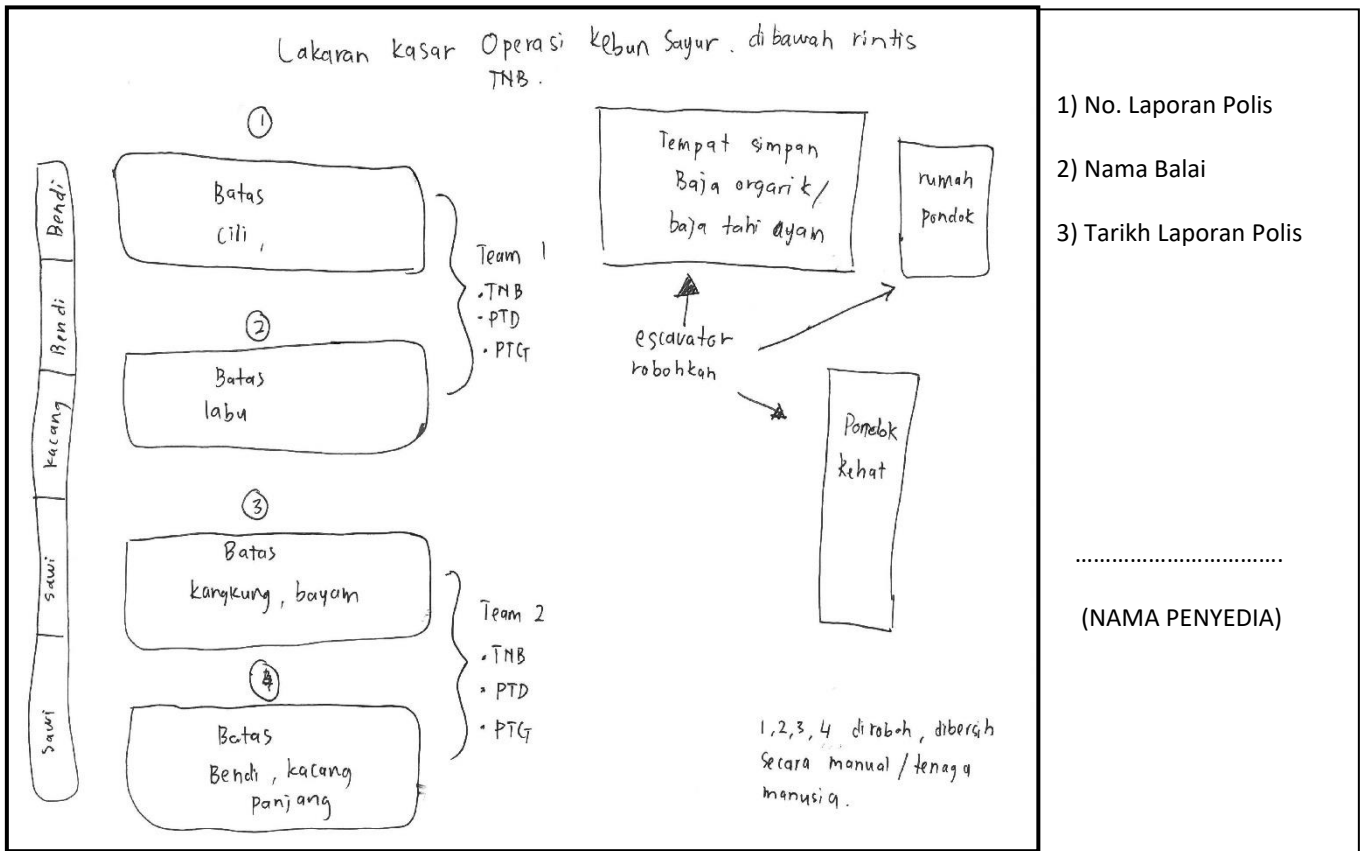 Lakaran kasar Operasi kebun Sayur. dibawah rintis
TNB.
Bendi
Bendi
kacang
sawi
sawi
1
Batas
Cili,
2
Batas
labu
Team 1
• TNB
• PTD
• PTG
3
Batas
kangkung, bayam
4
Batas
Bendi, kacang
panjang
Team 2
• TNB
• PTD
• PTG
Tempat simpan
Baja organik/
baja tahi ayam
rumah
pondok
escavator
robohkan
Pondok
Rehat
1,2,3,4 diroboh, dibersih
Secara manual/tenaga
manusia.
1) No. Laporan Polis
2) Nama Balai
3) Tarikh Laporan Polis
.................................
(NAMA PENYEDIA)